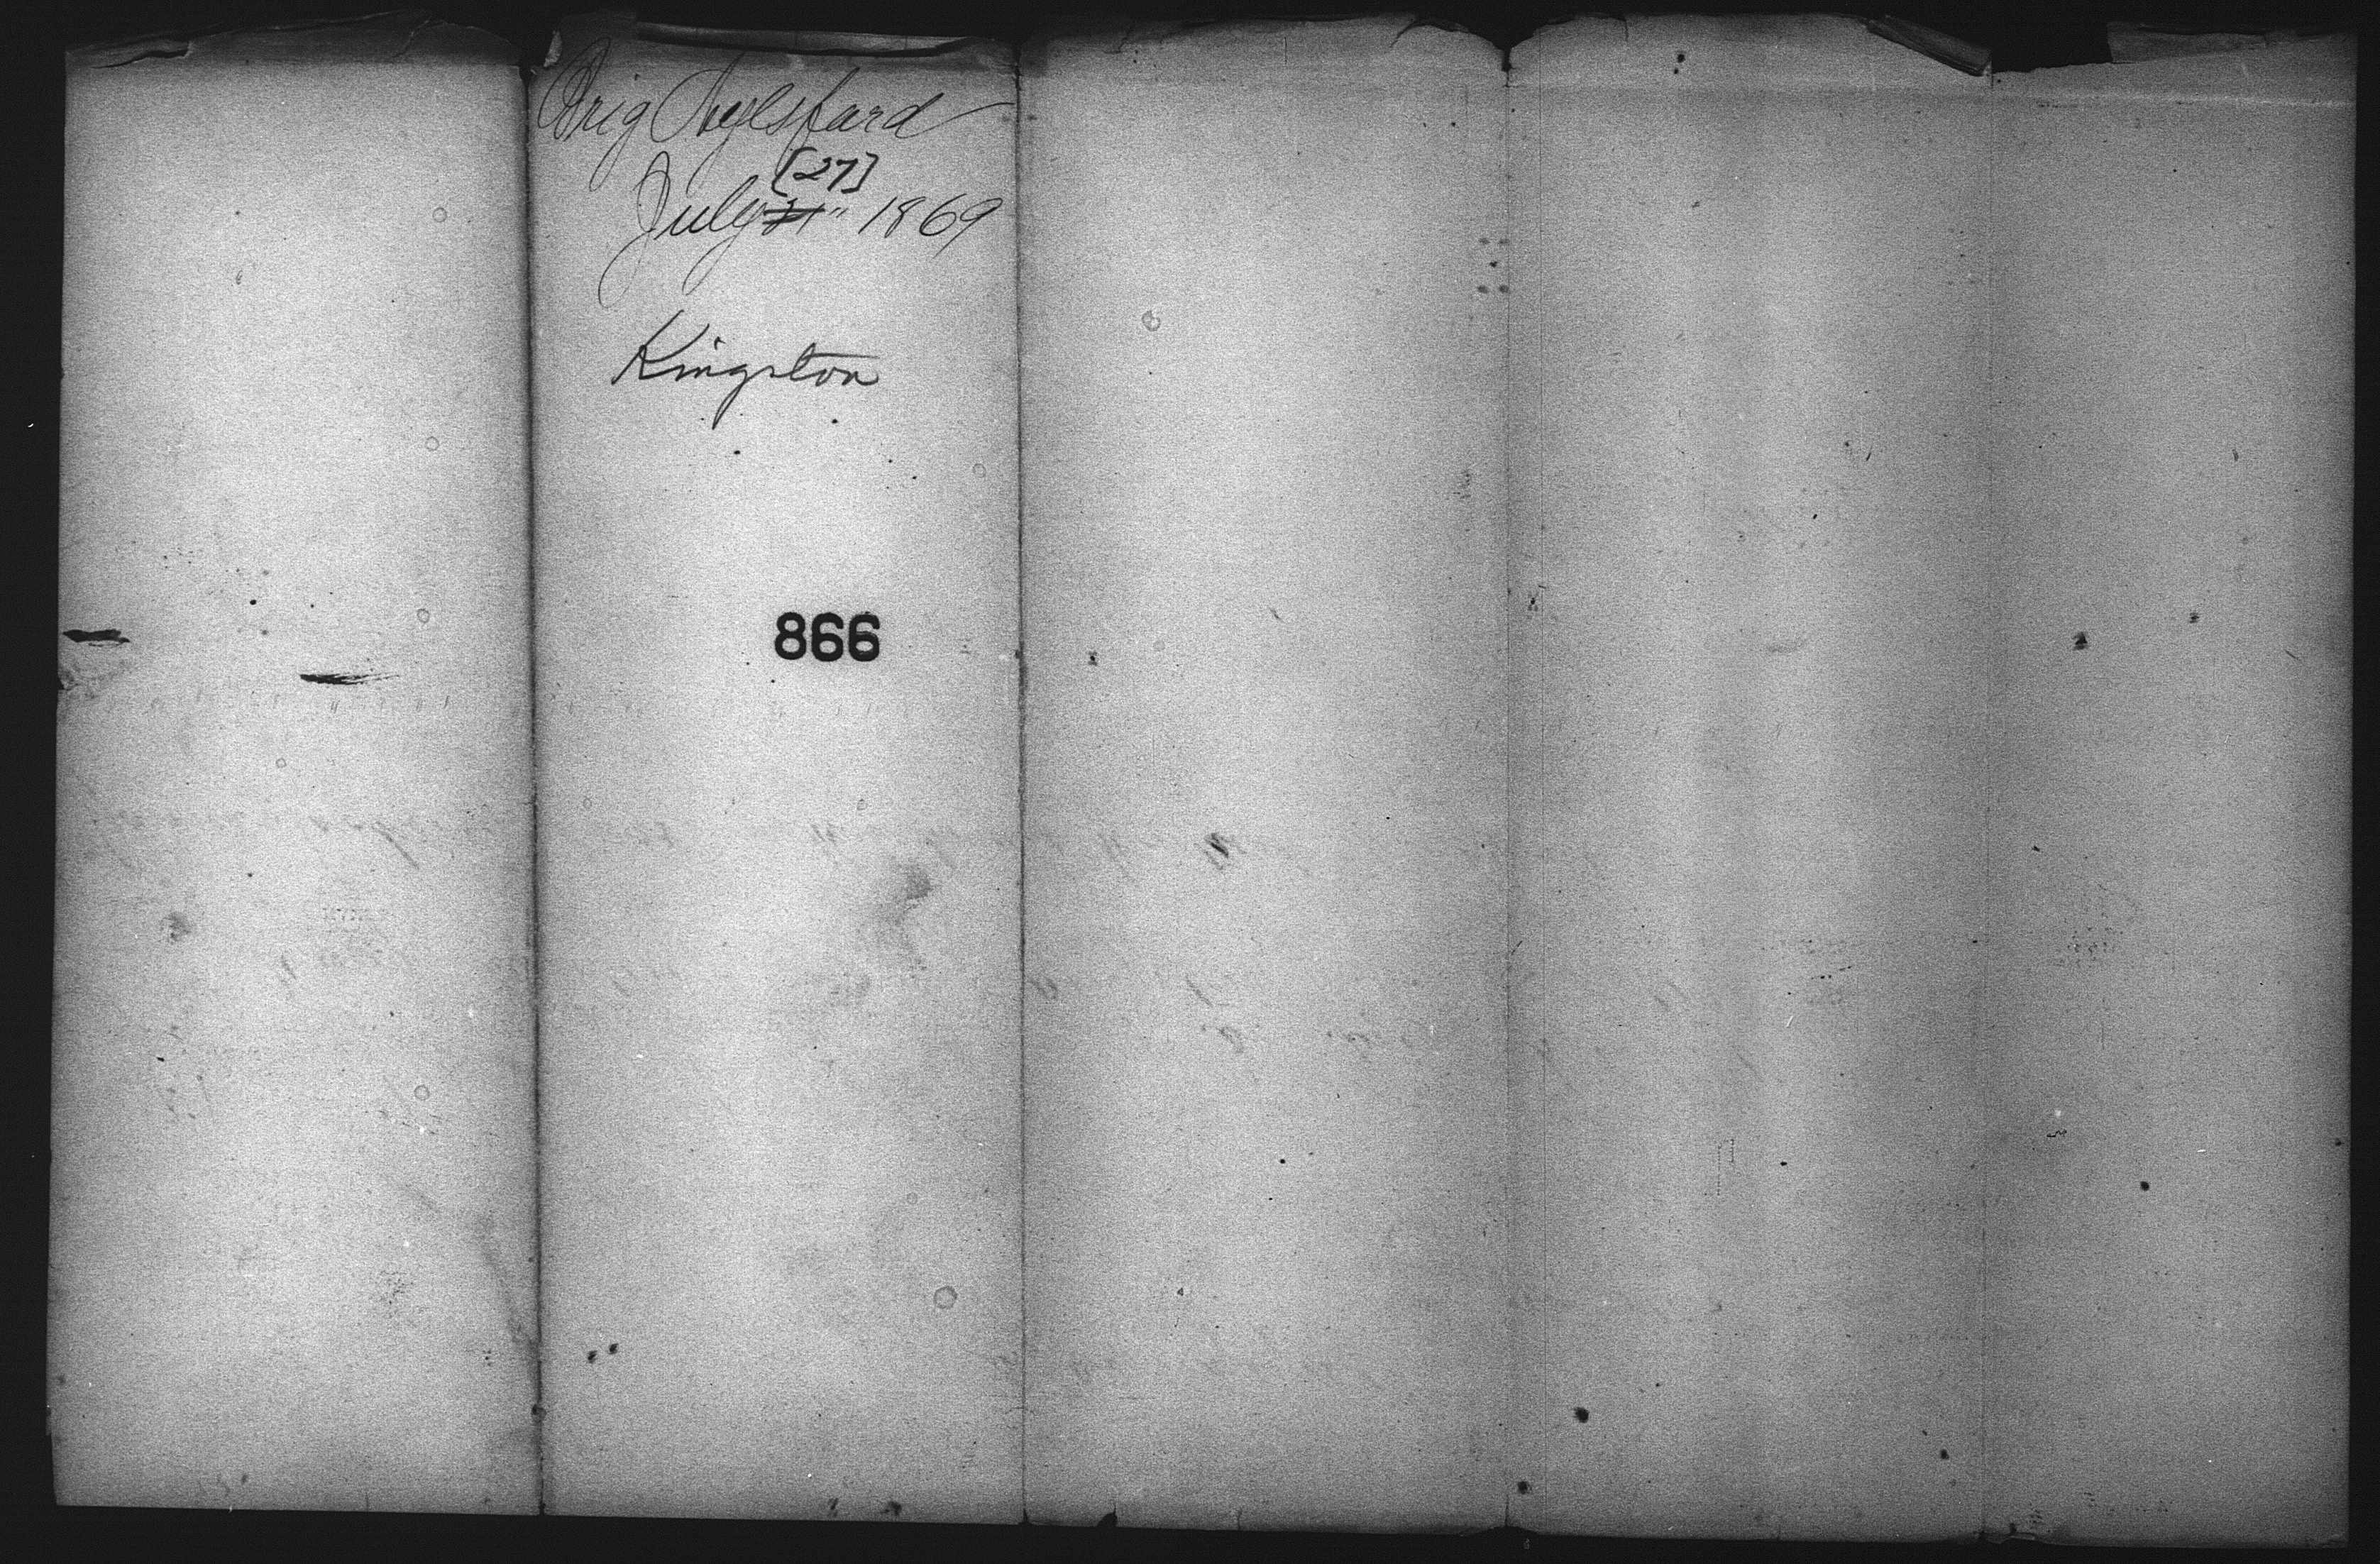 Brig Aylsfard
[27]
July 21" 1869
Kingston
866